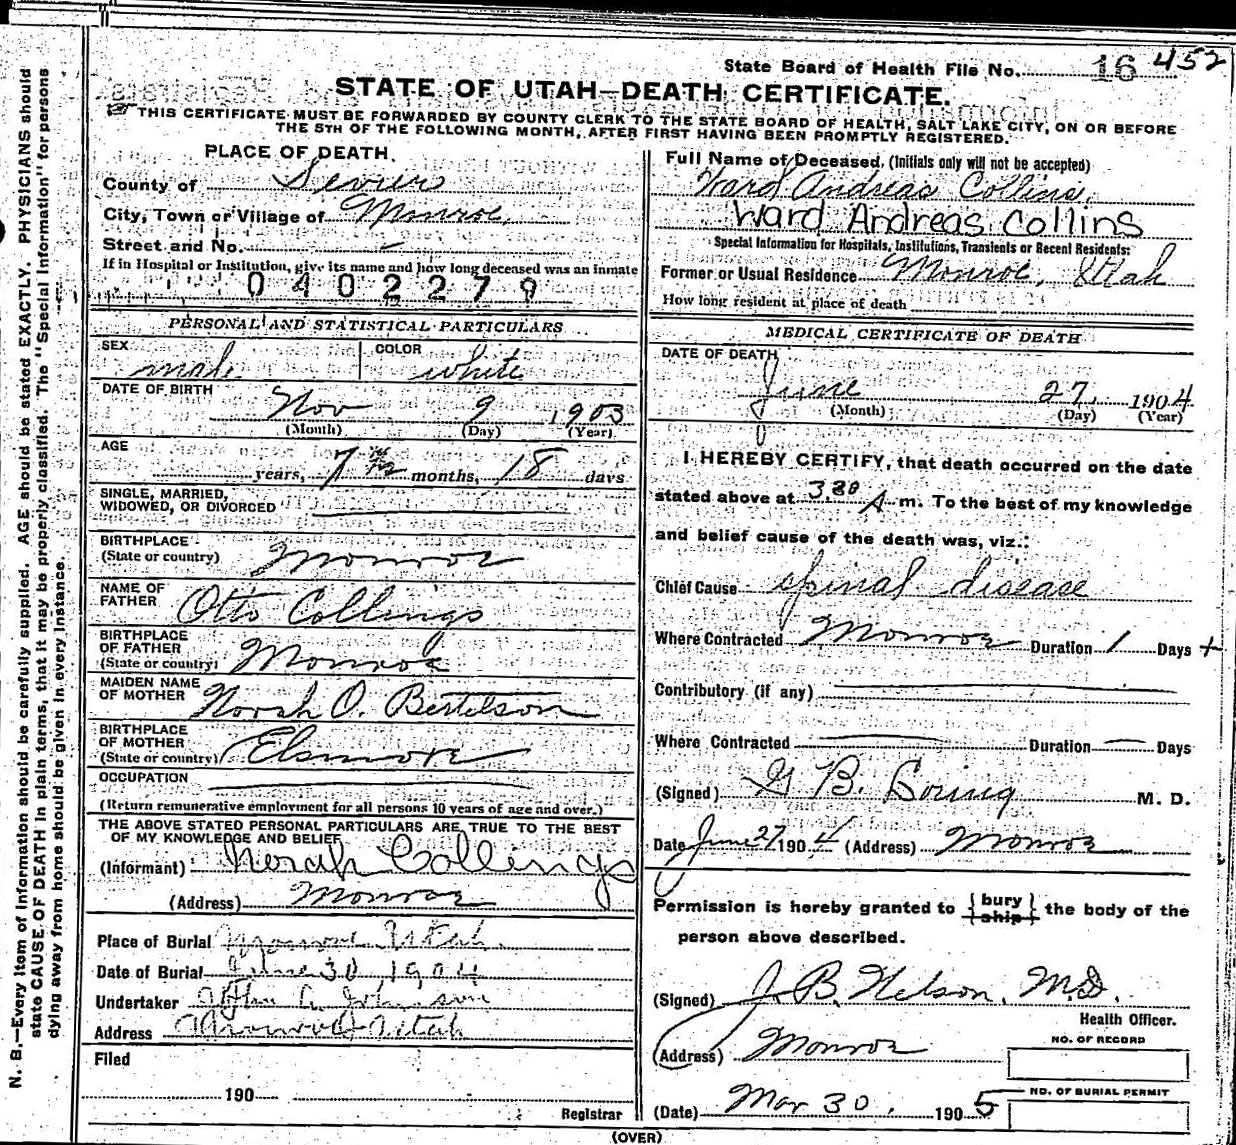 State Board of Health File No. 16 452
STATE OF UTAH—DEATH CERTIFICATE.
THIS CERTIFICATE MUST BE FORWARDED BY COUNTY CLERK TO THE STATE BOARD OF HEALTH, SALT LAKE CITY, ON OR BEFORE
THE 5TH OF THE FOLLOWING MONTH, AFTER FIRST HAVING BEEN PROMPTLY REGISTERED.
PLACE OF DEATH.
County of Sevier
City, Town or Village of Monroe
Street and No. —
If in Hospital or Institution, give its name and how long deceased was an inmate
0402279
PERSONAL AND STATISTICAL PARTICULARS
SEX male COLOR white
DATE OF BIRTH Nov 9 1903
(Month) (Day) (Year)
AGE
years, 7 months, 18 days
SINGLE, MARRIED,
WIDOWED, OR DIVORCED
BIRTHPLACE
(State or country) Monroe
NAME OF
FATHER Otto Collings
BIRTHPLACE
OF FATHER
(State or country) Monroe
MAIDEN NAME
OF MOTHER Norah O. Bertelson
BIRTHPLACE
OF MOTHER
(State or country) Elsmore
OCCUPATION
(Return remunerative employment for all persons 10 years of age and over.)
THE ABOVE STATED PERSONAL PARTICULARS ARE TRUE TO THE BEST
OF MY KNOWLEDGE AND BELIEF
(Informant) Norah Collings
(Address) Monroe
Place of Burial Monroe Utah
Date of Burial June 30 1904
Undertaker John Johnson
Address Monroe Utah
Filed
190
Registrar
Full Name of Deceased, (Initials only will not be accepted)
Ward Andreas Collins.
Ward Andreas Collins
Special Information for Hospitals, Institutions, Transients or Recent Residents:
Former or Usual Residence Monroe, Utah
How long resident at place of death
MEDICAL CERTIFICATE OF DEATH
DATE OF DEATH
June 27. 1904
(Month) (Day) (Year)
I HEREBY CERTIFY, that death occurred on the date
stated above at 3.30 A m. To the best of my knowledge
and belief cause of the death was, viz.:
Chief Cause spinal disease
Where Contracted Monroe Duration 1 Days +
Contributory (if any)
Where Contracted Duration — Days
(Signed) G B. Loring M. D.
Date June 27 1904 (Address) Monroe
Permission is hereby granted to {bury / ship} the body of the
person above described.
(Signed) J. B. Nelson, M.D.
Health Officer.
(Address) Monroe
NO. OF RECORD
NO. OF BURIAL PERMIT
(Date) Mar 30. 1905
(OVER)
N. B.—Every item of information should be carefully supplied. AGE should be stated EXACTLY. PHYSICIANS should
state CAUSE OF DEATH in plain terms, that it may be properly classified. The "Special Information" for persons
dying away from home should be given in every instance.